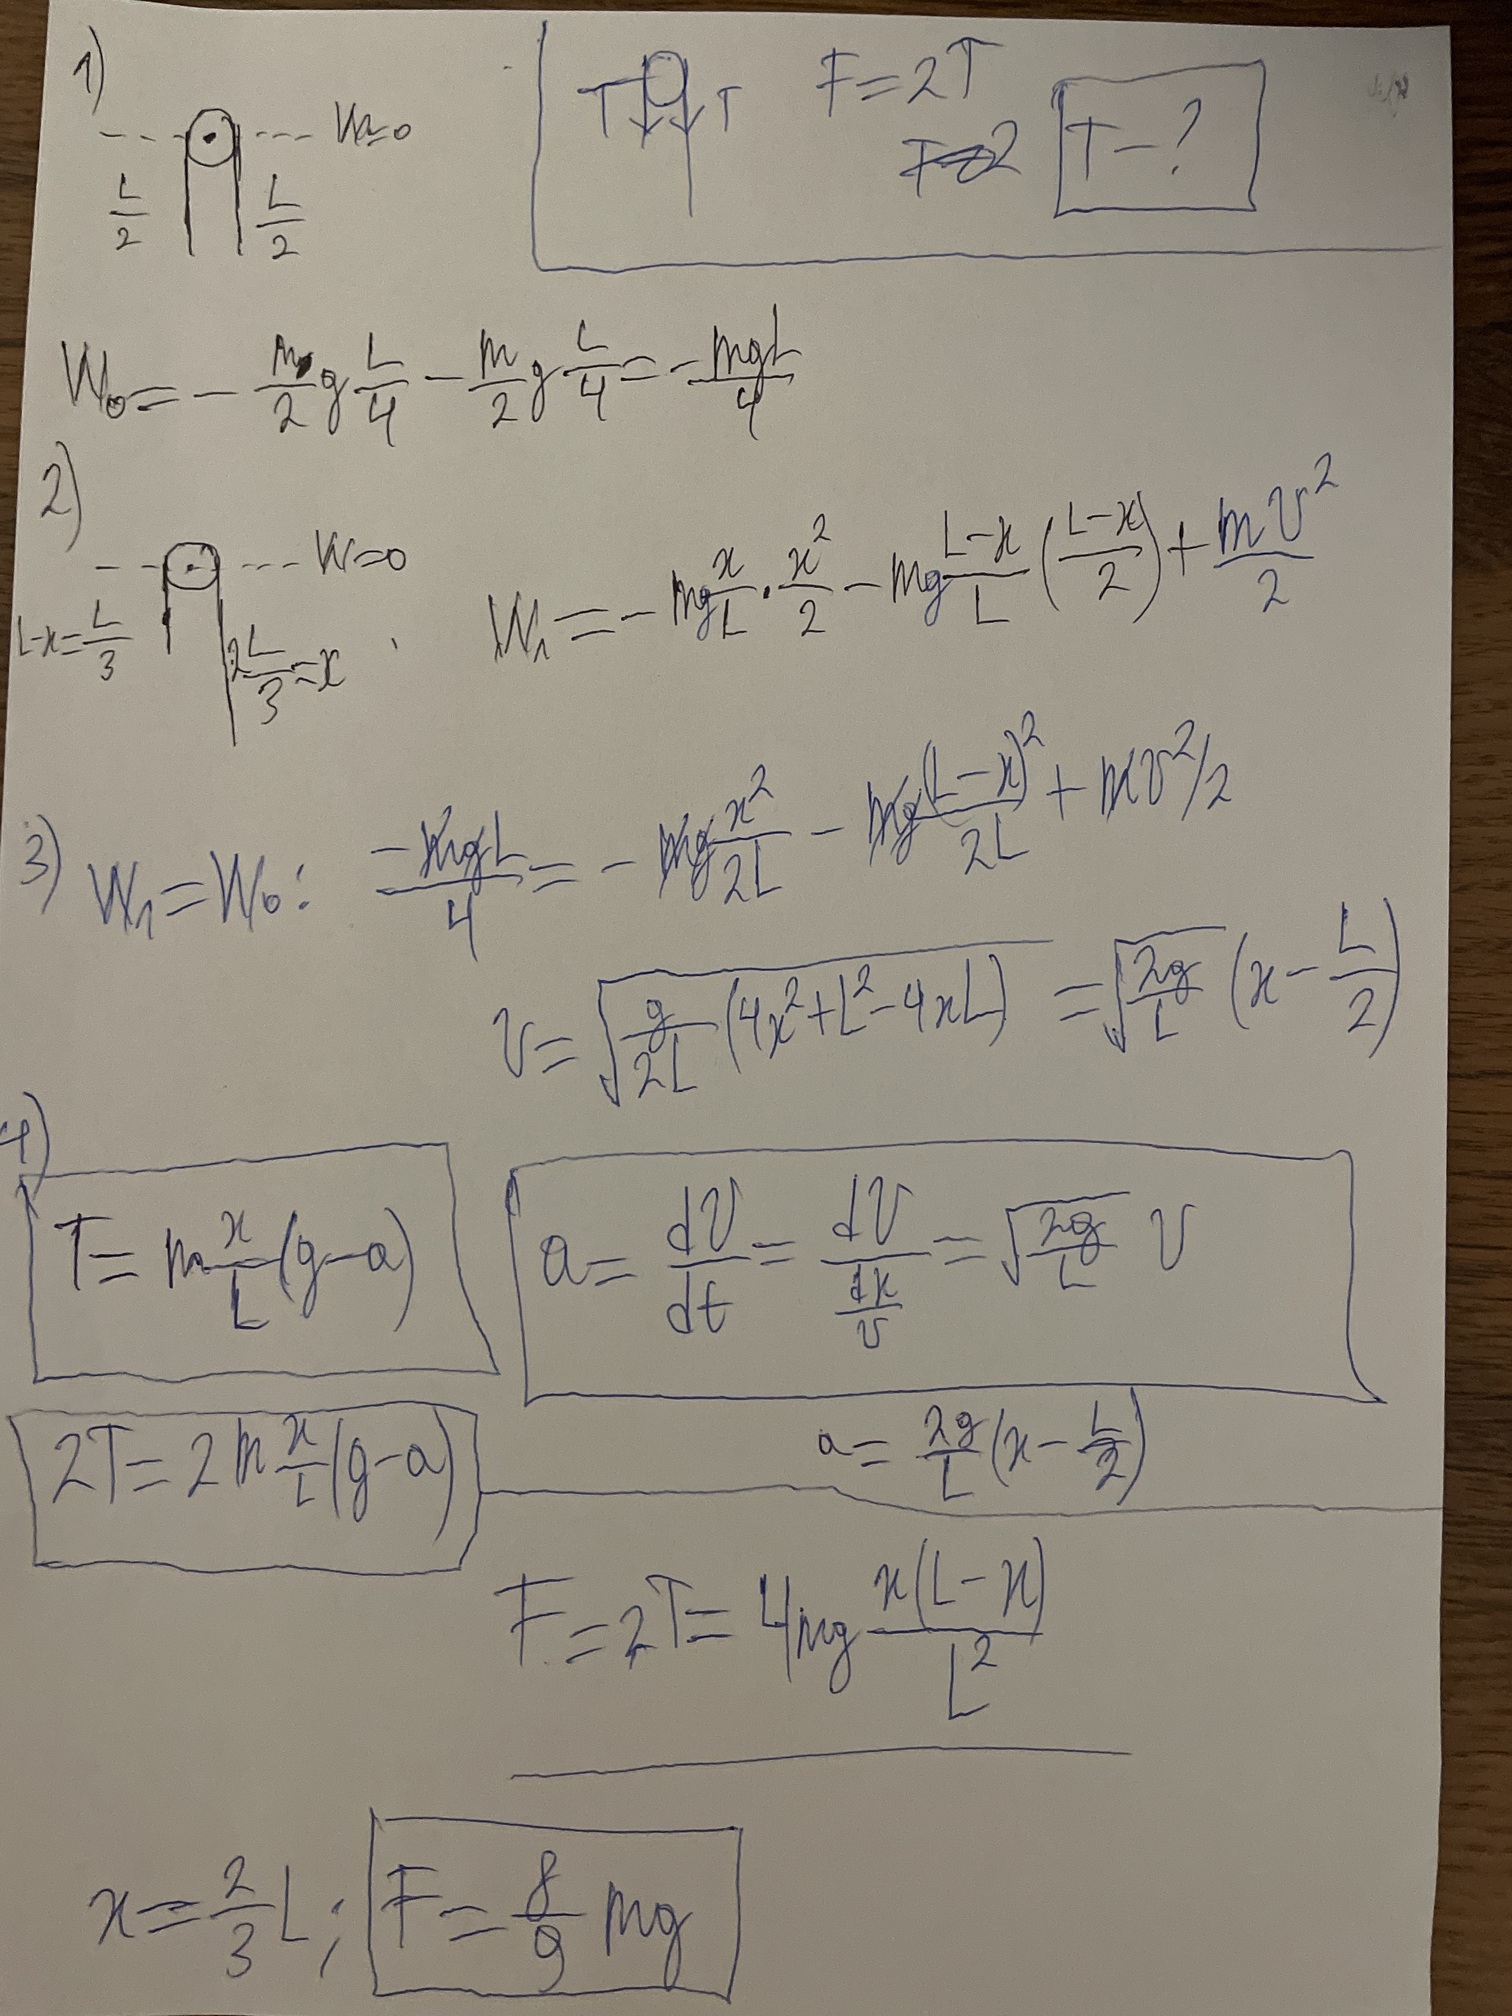 1)
W=0
L/2 L/2
T T F=2T
T=2 T-?
W₀ = - m/2 g L/4 - m/2 g L/4 = - mgL/4
2)
W=0
L-x = L/3
2L/3 = x
W₁ = - mg x/L · x²/2 - mg L-x/L (L-x/2) + mv²/2
3) W₁ = W₀: -mgL/4 = - mg x²/2L - mg (L-x)²/2L + mv²/2
v = √(g/2L (4x²+L²-4xL)) = √(2g/L) (x - L/2)
4)
T = m x/L (g-a)
a = dv/dt = dv/(dx/v) = √(2g/L) v
2T = 2m x/L (g-a)
a = 2g/L (x - L/2)
F = 2T = 4mg x(L-x)/L²
x = 2/3 L; F = 8/9 mg